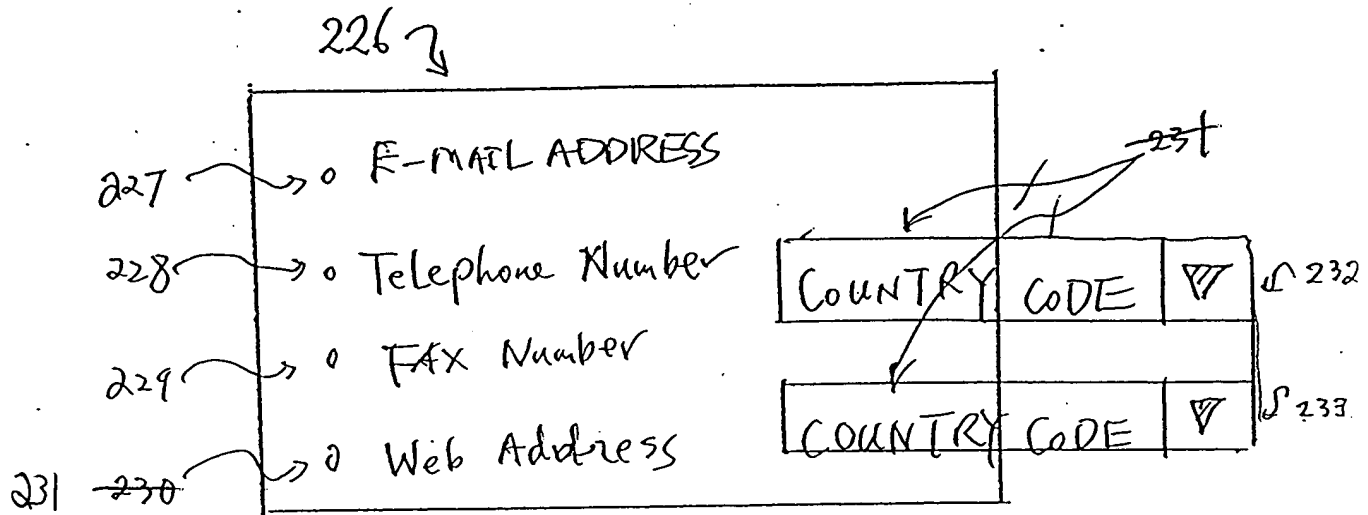 226
227 o E-MAIL ADDRESS
231
228 o Telephone Number COUNTRY CODE 232
229 o FAX Number
COUNTRY CODE 233
231 230 o Web Address